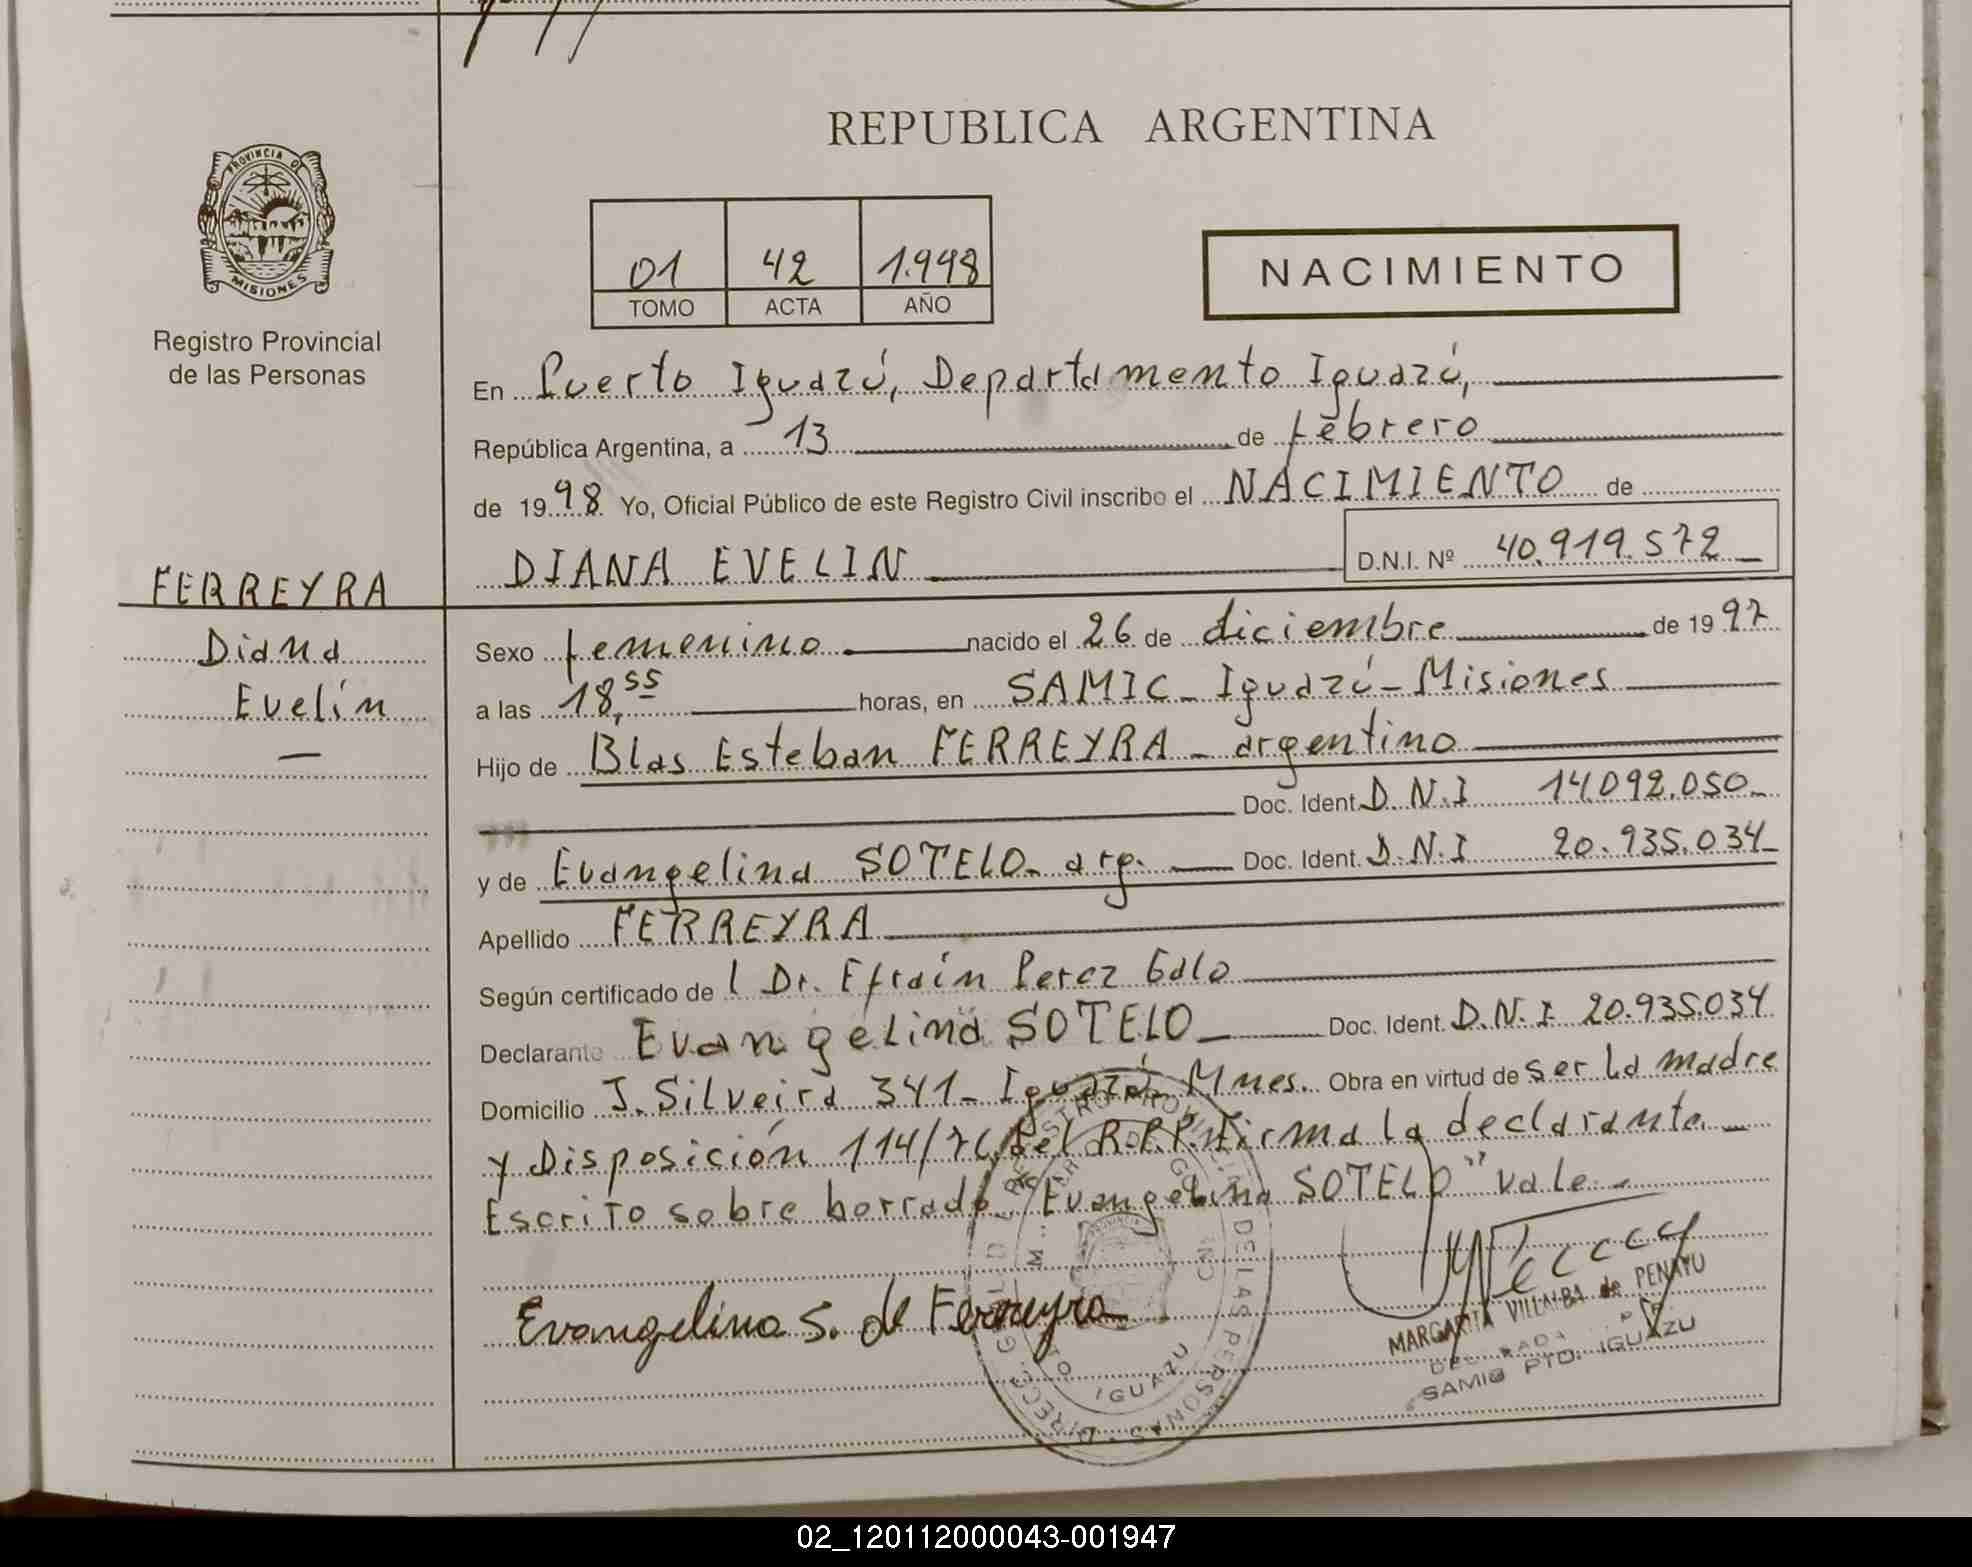 REPUBLICA ARGENTINA
PROVINCIA DE
MISIONES
Registro Provincial
de las Personas
01 42 1.998
TOMO ACTA AÑO
NACIMIENTO
En Puerto Iguazú, Departamento Iguazú,
República Argentina, a 13 de febrero
de 1998 Yo, Oficial Público de este Registro Civil inscribo el NACIMIENTO de
DIANA EVELIN D.N.I. Nº 40.919.572
FERREYRA
Diana
Evelin
Sexo femenino nacido el 26 de diciembre de 1997
a las 18,55 horas, en SAMIC - Iguazú - Misiones
Hijo de Blas Esteban FERREYRA - argentino
Doc. Ident. D.N.I 14.092.050.
y de Evangelina SOTELO - arg. Doc. Ident. D.N.I 20.935.034
Apellido FERREYRA
Según certificado del Dr. Efraín Perez Galo
Declarante Evangelina SOTELO Doc. Ident. D.N.I 20.935.034
Domicilio J. Silveira 341 - Iguazú Mnes. Obra en virtud de ser la madre
y Disposición 114/76 del R.P.P. Firma la declarante.
Escrito sobre borrado "Evangelina SOTELO" vale.
Evangelina S. de Ferreyra
MARGARITA VILLALBA de PENAYU
SAMIC PTO. IGUAZU
DE LAS PERSONAS
IGUAZU
02_120112000043-001947